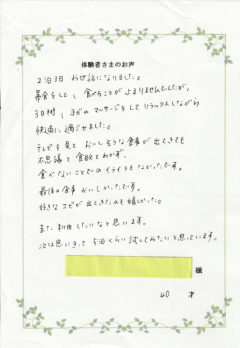 体験者さまのお声
2泊3日 お世話になりました。
暴食をして、食べることが止まりませんでしたが、
3日間、ヨガやマッサージをしてリラックスしながら
快適に過ごせました。
テレビを見て おいしそうな食事が出てきても
不思議と食欲もわかず、
食べないことでのイライラもなかったです。
最後の食事 おいしかったです。
好きなエビが出てきたのも嬉しかった。
また利用したいなと思います。
次は思いきって 5泊くらい試してみたいと思っています。
様
40 才